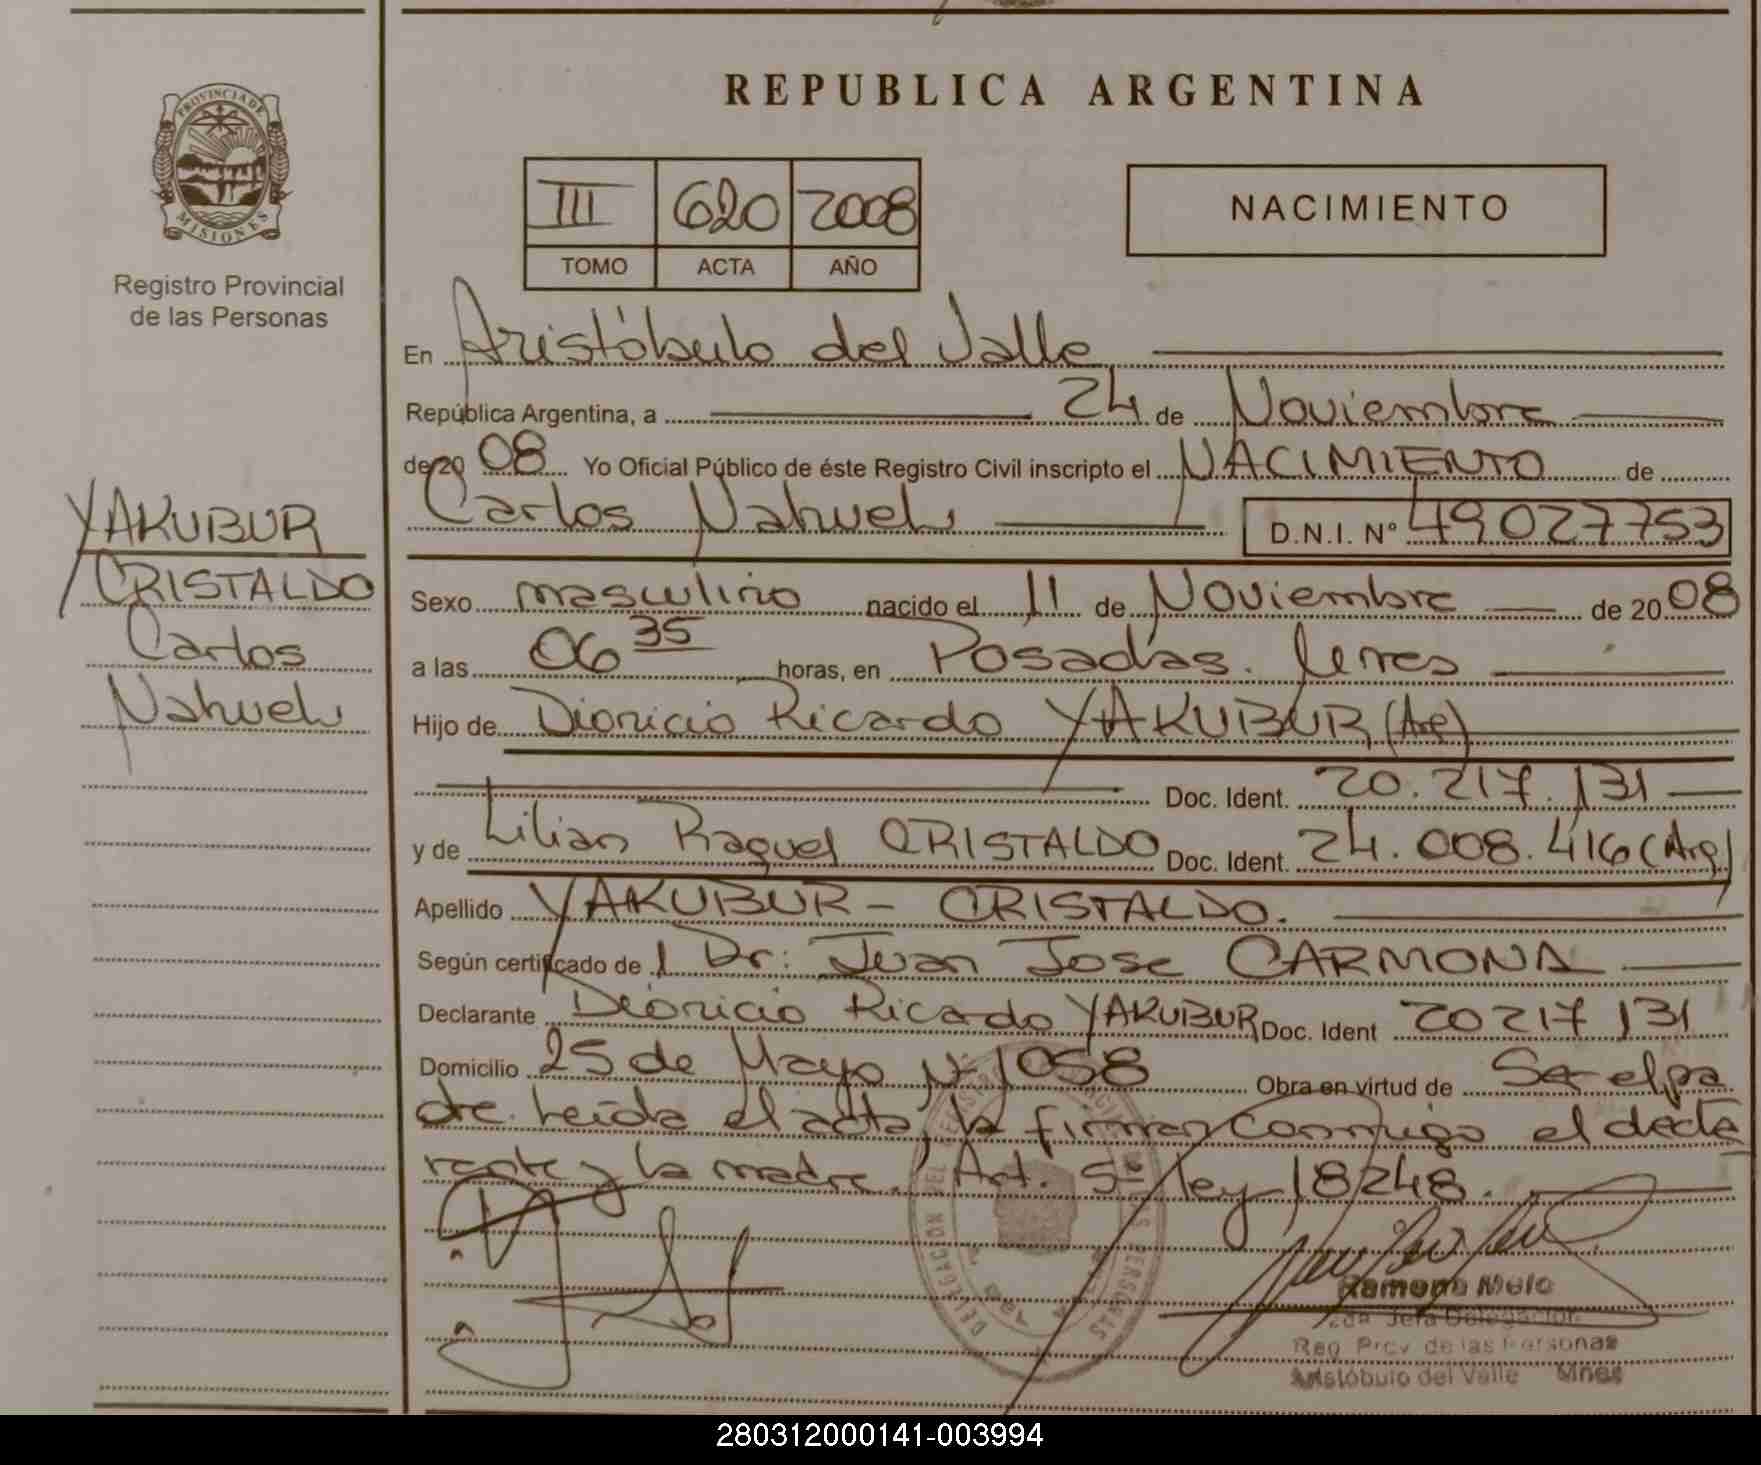 REPUBLICA ARGENTINA
PROVINCIA DE
MISIONES
Registro Provincial
de las Personas
III 620 2008
TOMO ACTA AÑO
NACIMIENTO
En Aristóbulo del Valle
República Argentina, a 24 de Noviembre
de 20 08 Yo Oficial Público de éste Registro Civil inscripto el NACIMIENTO de
Carlos Nahuel D.N.I. Nº 49027753
YAKUBUR
CRISTALDO
Carlos
Nahuel
Sexo masculino nacido el 11 de Noviembre de 20 08
a las 06 35 horas, en Posadas.
Hijo de Dionicio Ricardo YAKUBUR (Arg)
Doc. Ident. 20.217.131
y de Lilian Raquel CRISTALDO Doc. Ident. 24.008.416 (Arg)
Apellido YAKUBUR - CRISTALDO.
Según certificado de Dr: Juan Jose CARMONA
Declarante Dionicio Ricardo YAKUBUR Doc. Ident 20217131
Domicilio 25 de Mayo Nº 1058 Obra en virtud de Ser el pa
dre. Leída el acta, la firman conmigo el decla
rante y la madre. Art. 5º ley 18248.
Ramona Melo
Jefa Delegación
Reg. Prov. de las Personas
Aristóbulo del Valle Mnes
280312000141-003994